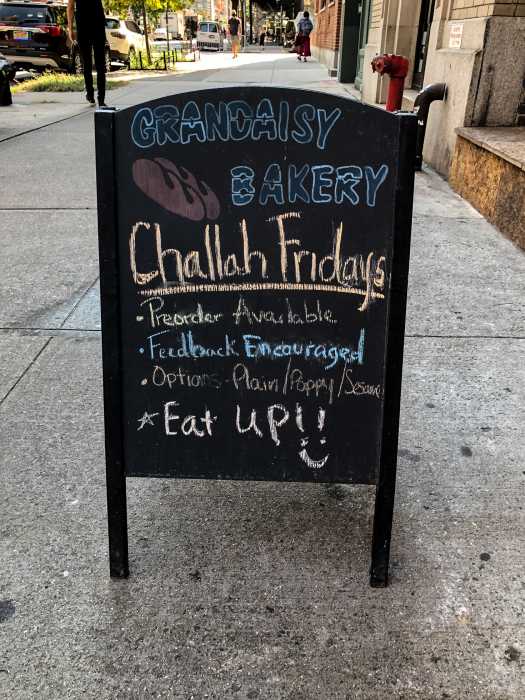 GRANDAISY
BAKERY
Challah Fridays
• Preorder Available
• Feedback Encouraged
• Options - Plain/Poppy/Sesame
☆ Eat UP!!